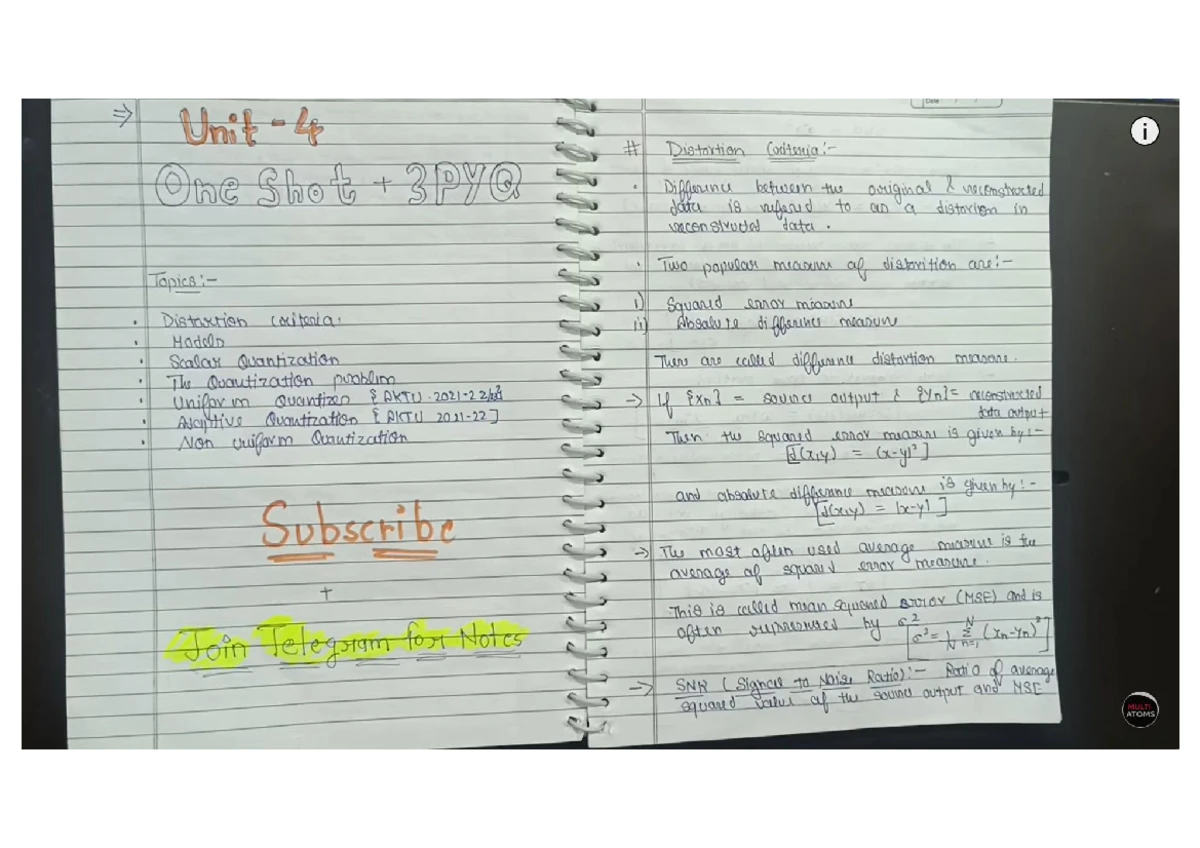 ⇒ Unit - 4
One Shot + 3PYQ
Topics :-
• Distortion Criteria.
• Models
• Scalar Quantization
• The Quantization problem
• Uniform Quantizer { AKTU 2021-22
• Adaptive Quantization [ AKTU 2021-22 ]
• Non uniform Quantization
Subscribe
+
Join Telegram for Notes
Date
# Distortion Criteria :-
• Difference between the original & reconstructed
data is refered to as a distortion in
reconstructed data .
• Two popular measure of distorition are :-
i) Squared error measure
ii) Absolute difference measure
There are called difference distortion measure .
→ If {xn} = source output & {Yn} = reconstructed
data output
Then the squared error measure is given by :-
[d(x,y) = (x-y)²]
and absolute difference measure is given by :-
[d(x,y) = |x-y| ]
→ The most often used average measure is the
average of squared error measure .
This is called mean squared error (MSE) and is
often represented by σ²
[σ² = 1/N Σ n=1 N (xn-yn)²]
→ SNR (Signal to Noise Ratio) :- Ratio of average
squared value of the source output and MSE
i
MULTI
ATOMS